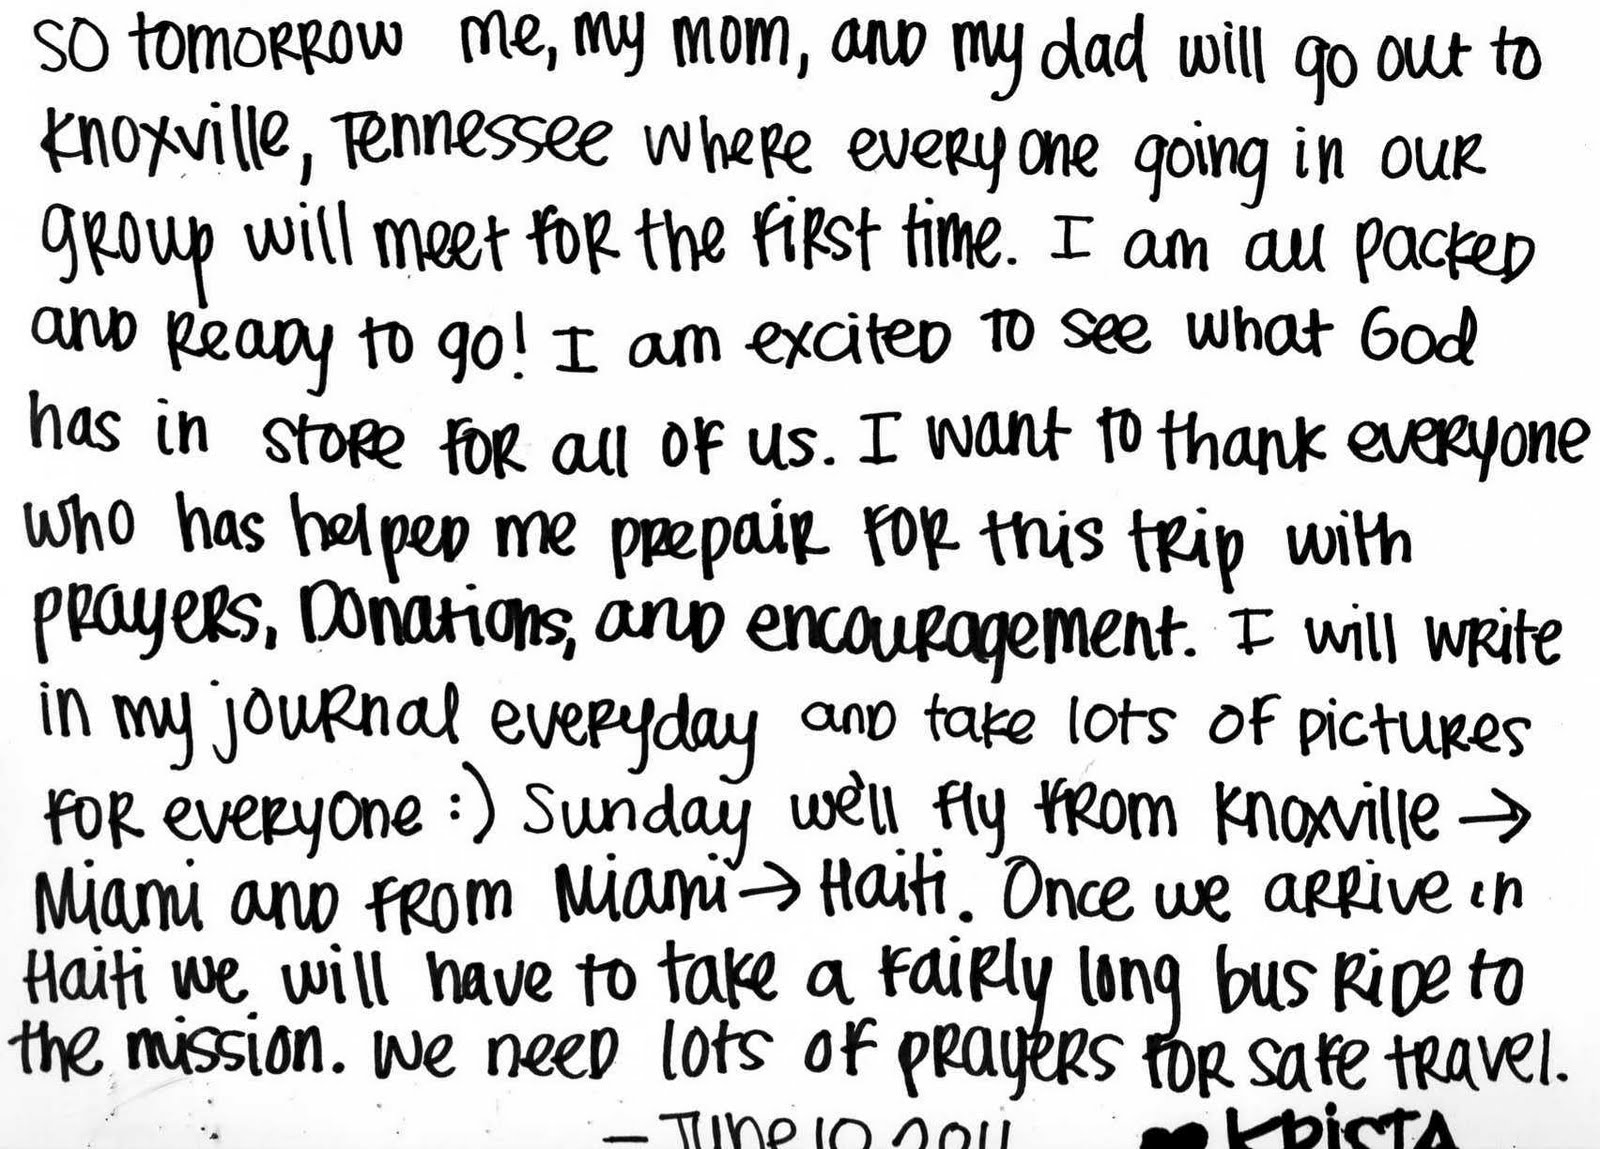 SO tomorrow me, my mom, and my dad will go out to
Knoxville, Tennessee where everyone going in our
group will meet for the first time. I am all packed
and ready to go! I am excited to see what God
has in store for all of us. I want to thank everyone
who has helped me prepair for this trip with
prayers, Donations, and encouragement. I will write
in my journal everyday and take lots of pictures
for everyone :) Sunday we'll fly from Knoxville →
Miami and from Miami → Haiti. Once we arrive in
Haiti we will have to take a fairly long bus ride to
the mission. We need lots of prayers for safe travel.
— June 10 2011 ♥ KRISTA